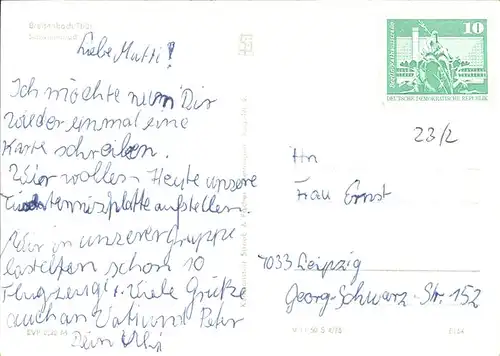 Breitenbach/Thür.
Liebe Mutti!
Ich möchte nun Dir
wieder einmal eine
Karte schreiben.
Wier wollen Heute unsere
Tischtennisplatte aufstellen.
Wir in unserer Gruppe
bastelten schon 10
Flugzeuge. Viele Grüße
auch an Vati und Peter
Dein Uli
10
DEUTSCHE DEMOKRATISCHE REPUBLIK
23/2
An
Frau Ernst
7033 Leipzig
Georg-Schwarz-Str. 152